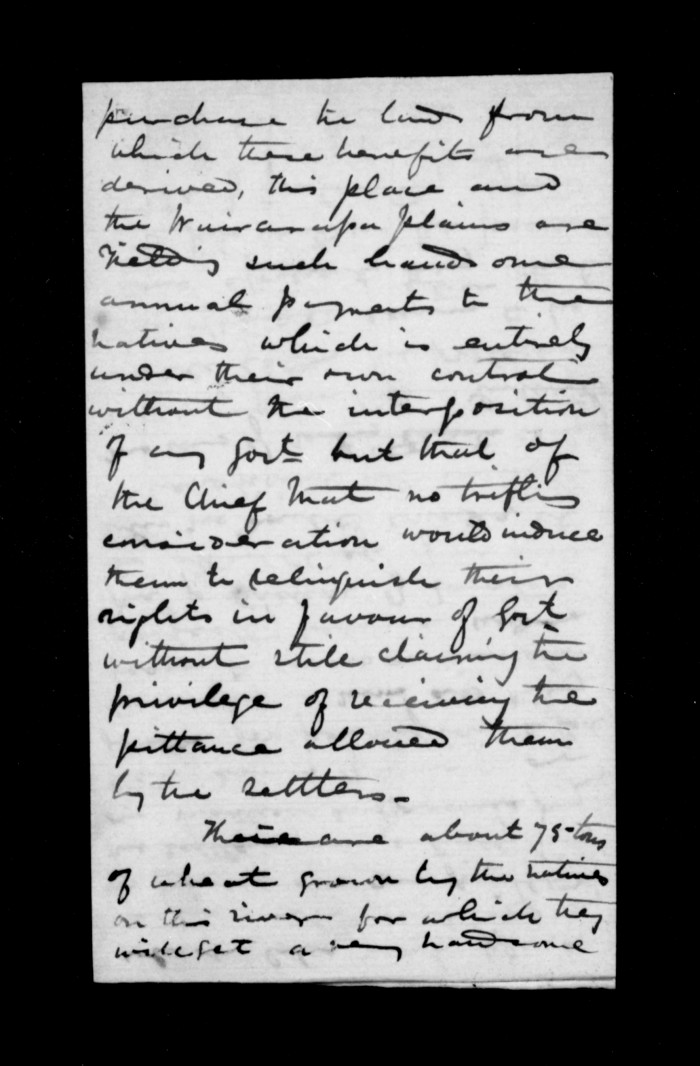 purchase the land from
which these benefits are
derived, this place and
the Wairarapa plains are
Yielding such handsome
annual payments to the
natives which is entirely
under their own control
without the interposition
of any Govt but that of
the Chief that no trifling
consideration would induce
them to relinquish their
rights in favour of Govt
without still claiming the
privilege of receiving the
pittance allowed them
by the settlers.
There are about 75 tons
of wheat grown by the natives
on this river for which they
will get a very handsome